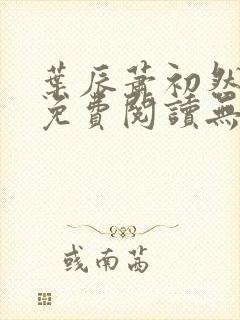 葉辰蕭初然
免費閱讀無
彧南茜